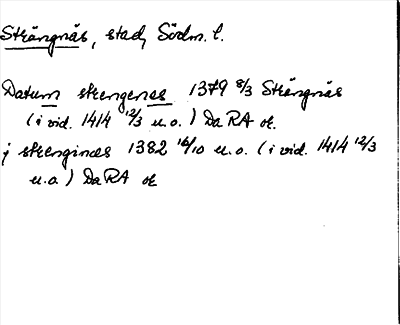 Strängnäs, stad, Södm. l.
Datum strengenes 1379 8/3 Strängnäs
(i vid. 1414 12/3 u.o.) Da RA or.
j strenginæs 1382 16/10 u.o. (i vid. 1414 12/3
u.o.) Da RA or